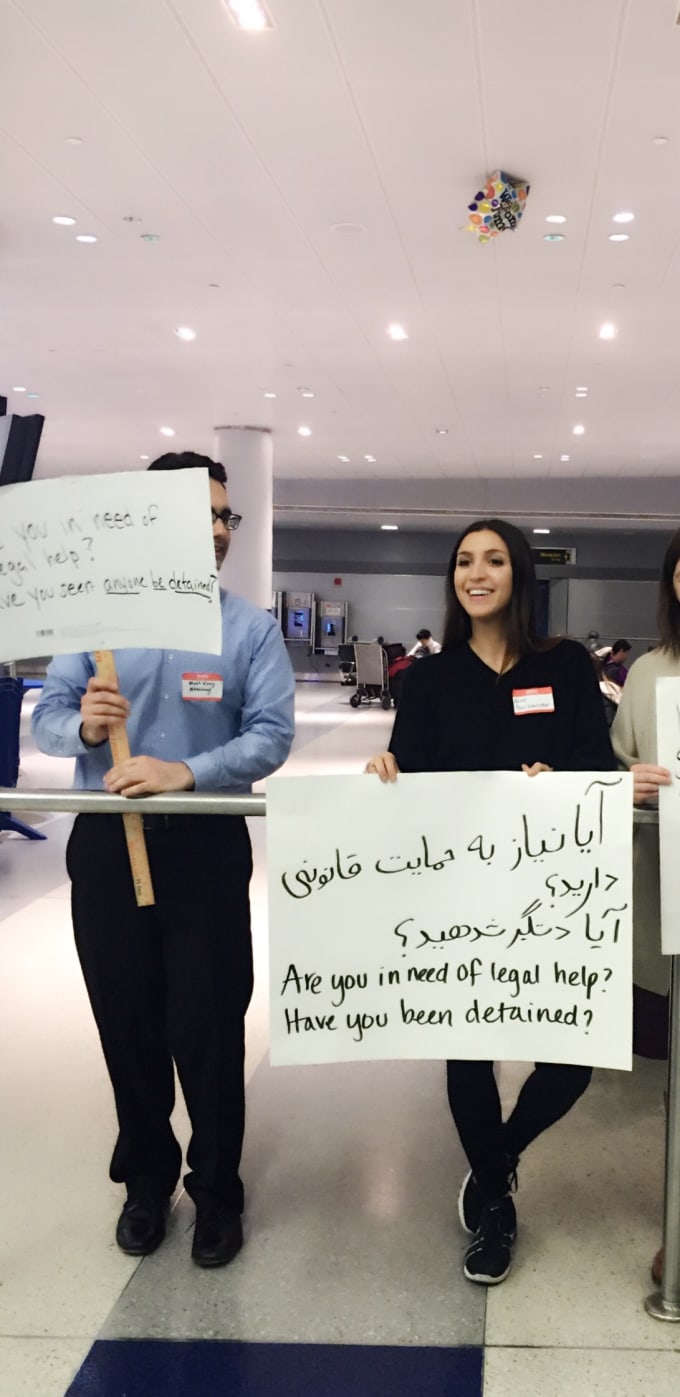 you in need of
egal help?
ve you seen anyone be detained?
آیا نیاز به حمایت قانونی
دارید؟
آیا دستگیر شدهید؟
Are you in need of legal help?
Have you been detained?
Women